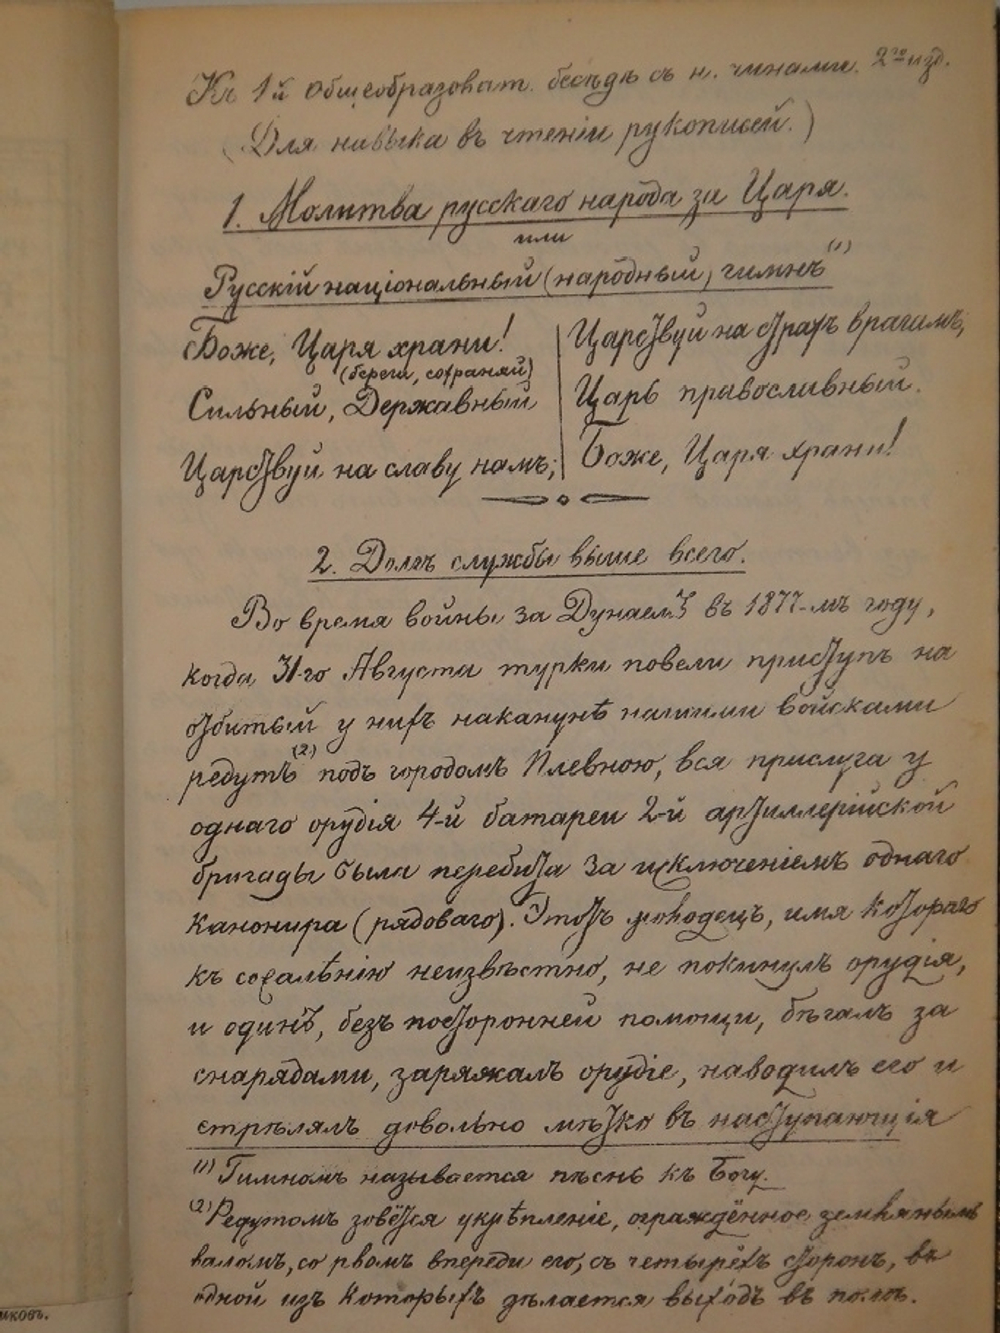 Къ 1й общеобразоват. бесѣдѣ съ н. чинами. 2го изд.
(Для навыка въ чтеніи рукописей.)
1. Молитва русскаго народа за Царя.
или
Русскій національный (народный) гимнъ (1)
Боже, Царя храни!
(береги, сохраняй)
Сильный, Державный
Царствуй на славу намъ;
Царствуй на страхъ врагамъ,
Царь православный.
Боже, Царя храни!
2. Долгъ службы выше всего.
Во время войны за Дунаемъ въ 1877-мъ году,
когда 31-го Августа турки повели приступъ на
отбитый у нихъ наканунѣ нашими войсками
редутъ (2) подъ городомъ Плевною, вся прислуга у
однаго орудія 4-й батареи 2-й артиллерійской
бригады была перебита за исключеніемъ однаго
канонира (рядоваго). Этотъ молодецъ, имя котораго
къ сожалѣнію неизвѣстно, не покинулъ орудія,
и одинъ, безъ посторонней помощи, бѣгалъ за
снарядами, заряжалъ орудіе, наводилъ его и
стрѣлялъ довольно мѣтко въ наступающія
(1) Гимномъ называется пѣснь къ Богу.
(2) Редутомъ зовётся укрѣпленіе, ограждённое землянымъ
валомъ, со рвомъ впереди его, съ четырёхъ сторонъ, въ
одной изъ которыхъ дѣлается выходъ въ поле.
иковъ.